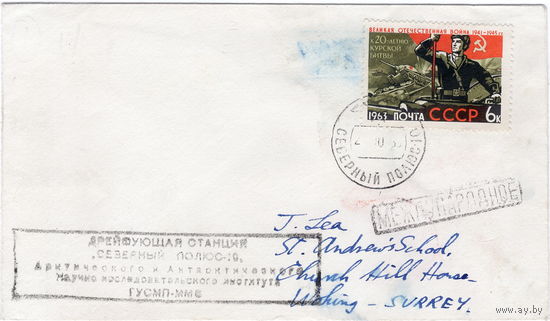 ВЕЛИКАЯ ОТЕЧЕСТВЕННАЯ ВОЙНА 1941-1945 гг.
К 20-ЛЕТИЮ
КУРСКОЙ
БИТВЫ
1963 ПОЧТА СССР 6К
СЕВЕРНЫЙ ПОЛЮС-10
МЕЖДУНАРОДНОЕ
ДРЕЙФУЮЩАЯ СТАНЦИЯ
„СЕВЕРНЫЙ ПОЛЮС-10„
Арктического и Антарктического
Научно исследовательского института
ГУСМП-ММФ
J. Lea
St. Andrew's School,
Church Hill House-
Woking - SURREY.
www.ay.by